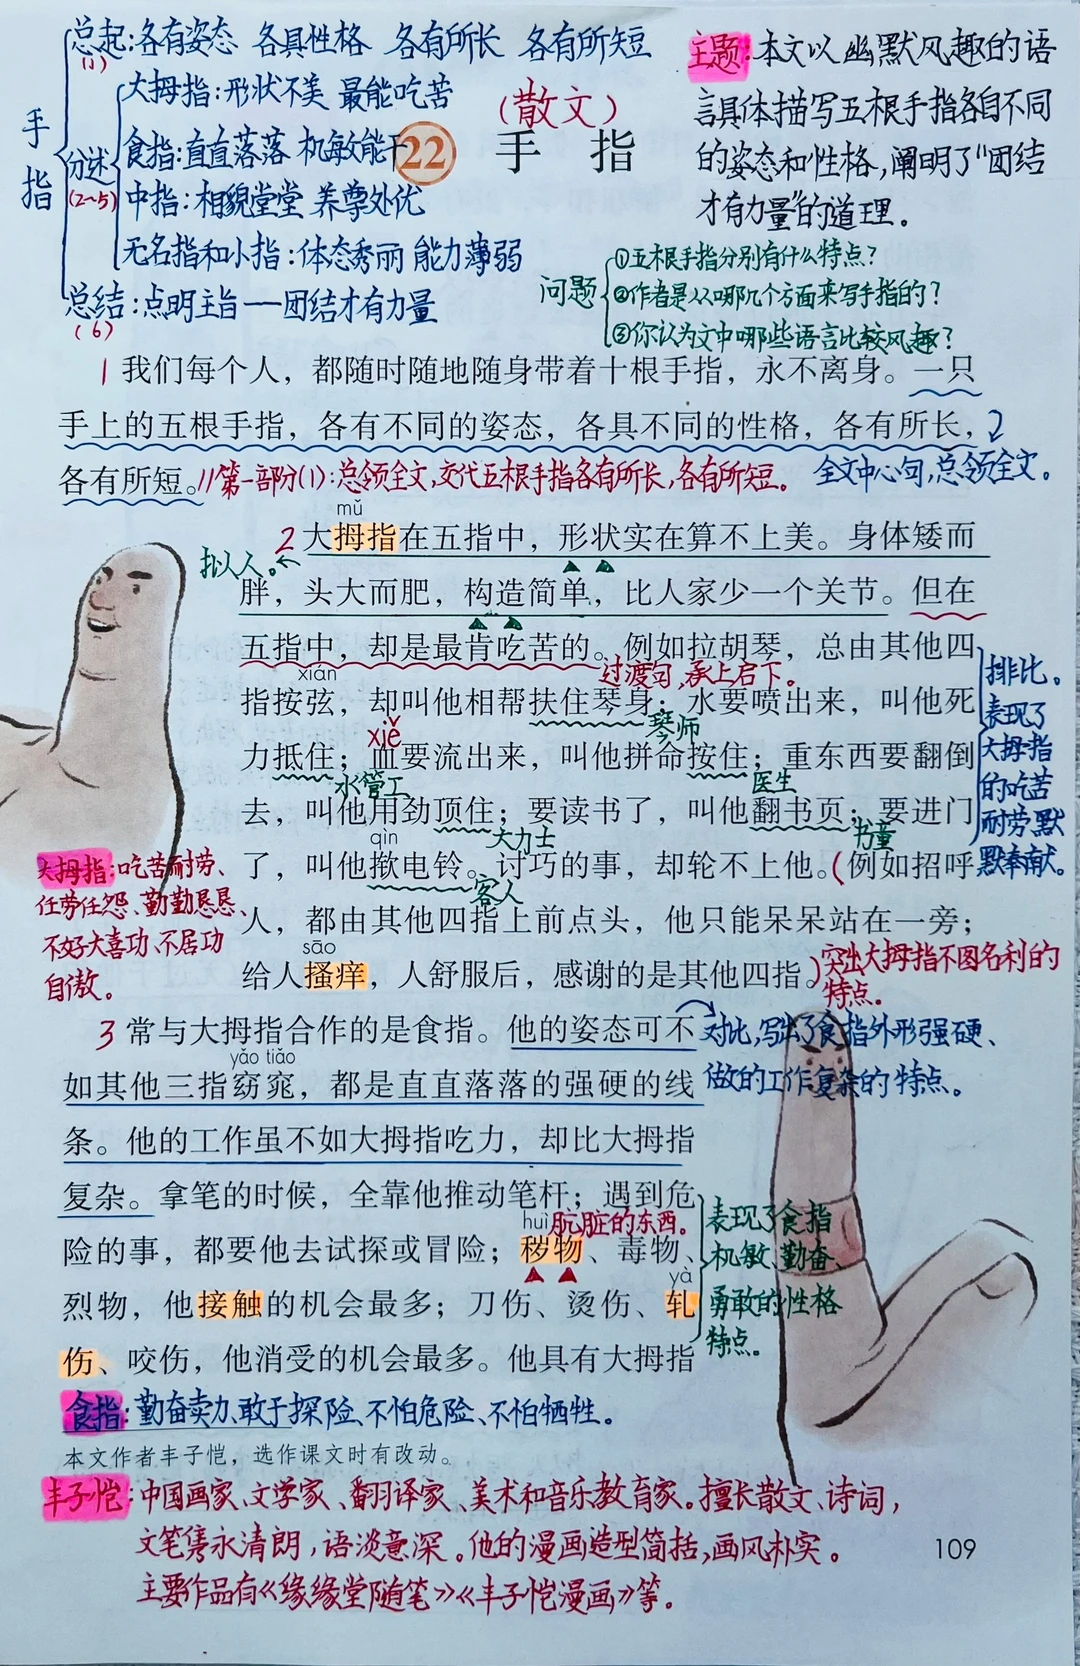 总起:各有姿态 各具性格 各有所长 各有所短
(1)
手指
分述
(2~5)
大拇指:形状不美 最能吃苦
食指:直直落落 机敏能干
中指:相貌堂堂 养尊处优
无名指和小指:体态秀丽 能力薄弱
总结:点明主旨——团结才有力量
(6)
(散文)
22 手 指
主题:本文以幽默风趣的语
言具体描写五根手指各自不同
的姿态和性格,阐明了“团结
才有力量”的道理。
问题
①五根手指分别有什么特点?
②作者是从哪几个方面来写手指的?
③你认为文中哪些语言比较风趣?
1 我们每个人，都随时随地随身带着十根手指，永不离身。一只
手上的五根手指，各有不同的姿态，各具不同的性格，各有所长，
各有所短。//第一部分(1):总领全文,交代五根手指各有所长,各有所短。
全文中心句,总领全文。
mǔ
2 大拇指在五指中，形状实在算不上美。身体矮而
拟人。
胖，头大而肥，构造简单，比人家少一个关节。但在
五指中，却是最肯吃苦的。例如拉胡琴，总由其他四
过渡句,承上启下。
xián
指按弦，却叫他相帮扶住琴身；水要喷出来，叫他死
琴师
xiě
力抵住；血要流出来，叫他拼命按住；重东西要翻倒
水管工
医生
去，叫他用劲顶住；要读书了，叫他翻书页；要进门
大力士
书童
qìn
了，叫他揿电铃。讨巧的事，却轮不上他。(例如招呼
客人
人，都由其他四指上前点头，他只能呆呆站在一旁；
sāo
给人搔痒，人舒服后，感谢的是其他四指。)
突出大拇指不图名利的
特点。
排比。
表现了
大拇指
的吃苦
耐劳默
默奉献。
大拇指:吃苦耐劳、
任劳任怨、勤勤恳恳、
不好大喜功、不居功
自傲。
3 常与大拇指合作的是食指。他的姿态可不
对比,写出了食指外形强硬、
做的工作复杂的特点。
yǎo tiǎo
如其他三指窈窕，都是直直落落的强硬的线
条。他的工作虽不如大拇指吃力，却比大拇指
复杂。拿笔的时候，全靠他推动笔杆；遇到危
huì
肮脏的东西。
险的事，都要他去试探或冒险；秽物、毒物、
yà
烈物，他接触的机会最多；刀伤、烫伤、轧
伤、咬伤，他消受的机会最多。他具有大拇指
表现了食指
机敏、勤奋、
勇敢的性格
特点。
食指:勤奋卖力、敢于探险、不怕危险、不怕牺牲。
本文作者丰子恺，选作课文时有改动。
丰子恺:中国画家、文学家、翻译家、美术和音乐教育家。擅长散文、诗词,
文笔隽永清朗,语淡意深。他的漫画造型简括,画风朴实。
主要作品有《缘缘堂随笔》《丰子恺漫画》等。
109